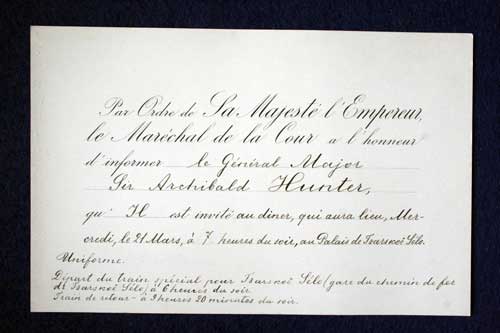 Par Ordre de Sa Majesté l'Empereur,
le Maréchal de la Cour a l'honneur
d'informer le Général Major
Sir Archibald Hunter,
qu' Il est invité au dîner, qui aura lieu, Mer-
credi, le 21 Mars, à 7 heures du soir, au Palais de Tsarskoé Sélo.
Uniforme.
Départ du train spécial pour Tsarskoé Sélo (gare du chemin de fer
de Tsarskoé Sélo) à 6 heures du soir.
Train de retour - à 9 heures 20 minutes du soir.